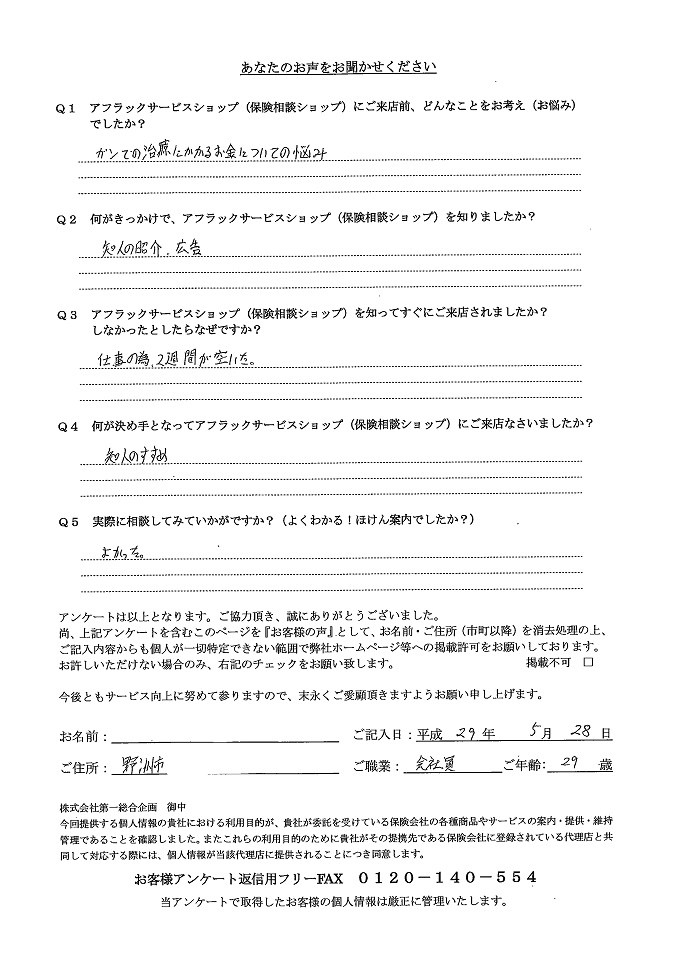 あなたのお声をお聞かせください
Q1 アフラックサービスショップ（保険相談ショップ）にご来店前、どんなことをお考え（お悩み）
でしたか？
ガンでの治療にかかるお金についての悩み
Q2 何がきっかけで、アフラックサービスショップ（保険相談ショップ）を知りましたか？
知人の紹介、広告
Q3 アフラックサービスショップ（保険相談ショップ）を知ってすぐにご来店されましたか？
しなかったとしたらなぜですか？
仕事の為、2週間が空いた。
Q4 何が決め手となってアフラックサービスショップ（保険相談ショップ）にご来店なさいましたか？
知人のすすめ
Q5 実際に相談してみていかがですか？（よくわかる！ほけん案内でしたか？）
よかった。
アンケートは以上となります。ご協力頂き、誠にありがとうございました。
尚、上記アンケートを含むこのページを『お客様の声』として、お名前・ご住所（市町以降）を消去処理の上、
ご記入内容からも個人が一切特定できない範囲で弊社ホームページ等への掲載許可をお願いしております。
お許しいただけない場合のみ、右記のチェックをお願い致します。 掲載不可 □
今後ともサービス向上に努めて参りますので、末永くご愛顧頂きますようお願い申し上げます。
お名前： ご記入日：平成 29 年 5月 28 日
ご住所： 野洲市 ご職業： 会社員 ご年齢： 29 歳
株式会社第一総合企画 御中
今回提供する個人情報の貴社における利用目的が、貴社が委託を受けている保険会社の各種商品やサービスの案内・提供・維持
管理であることを確認しました。またこれらの利用目的のために貴社がその提携先である保険会社に登録されている代理店と共
同して対応する際には、個人情報が当該代理店に提供されることにつき同意します。
お客様アンケート返信用フリーFAX 0120－140－554
当アンケートで取得したお客様の個人情報は厳正に管理いたします。